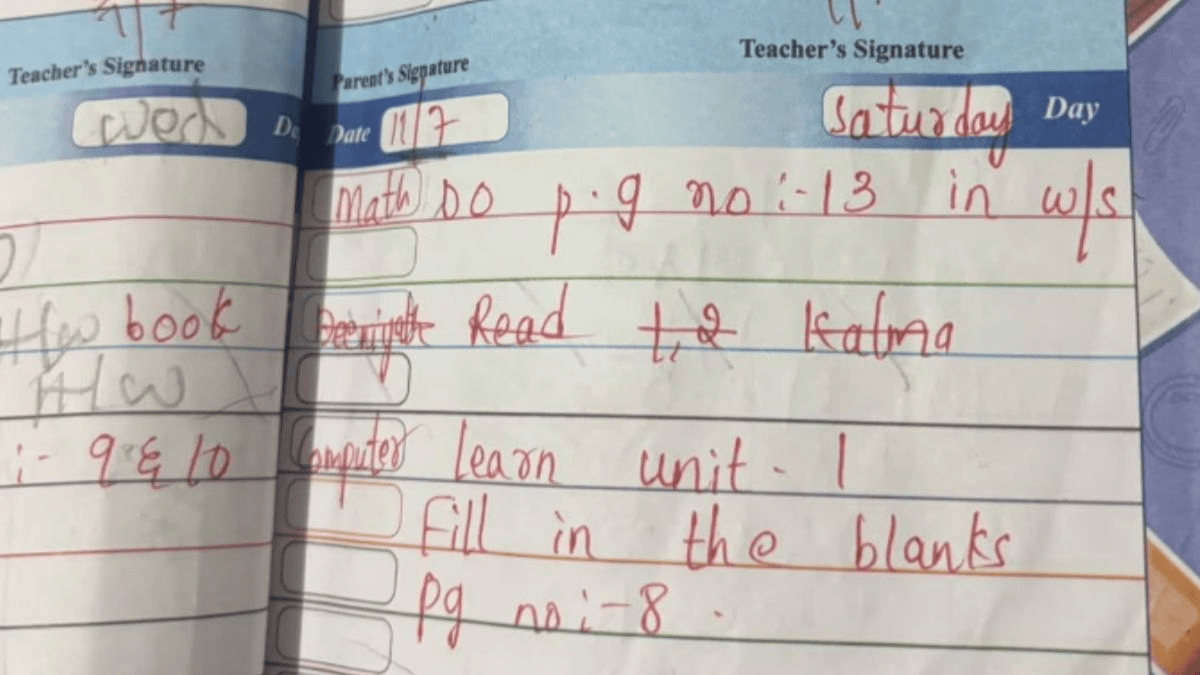 Teacher's Signature
wed
book
Hw
:- 9 & 10
Parent's Signature
Teacher's Signature
Date 11/7 Saturday Day
Math DO p.g no :- 13 in w/s
Deeniyath Read 1,2 Kalma
Computer Learn unit - 1
Fill in the blanks
Pg no :- 8 .